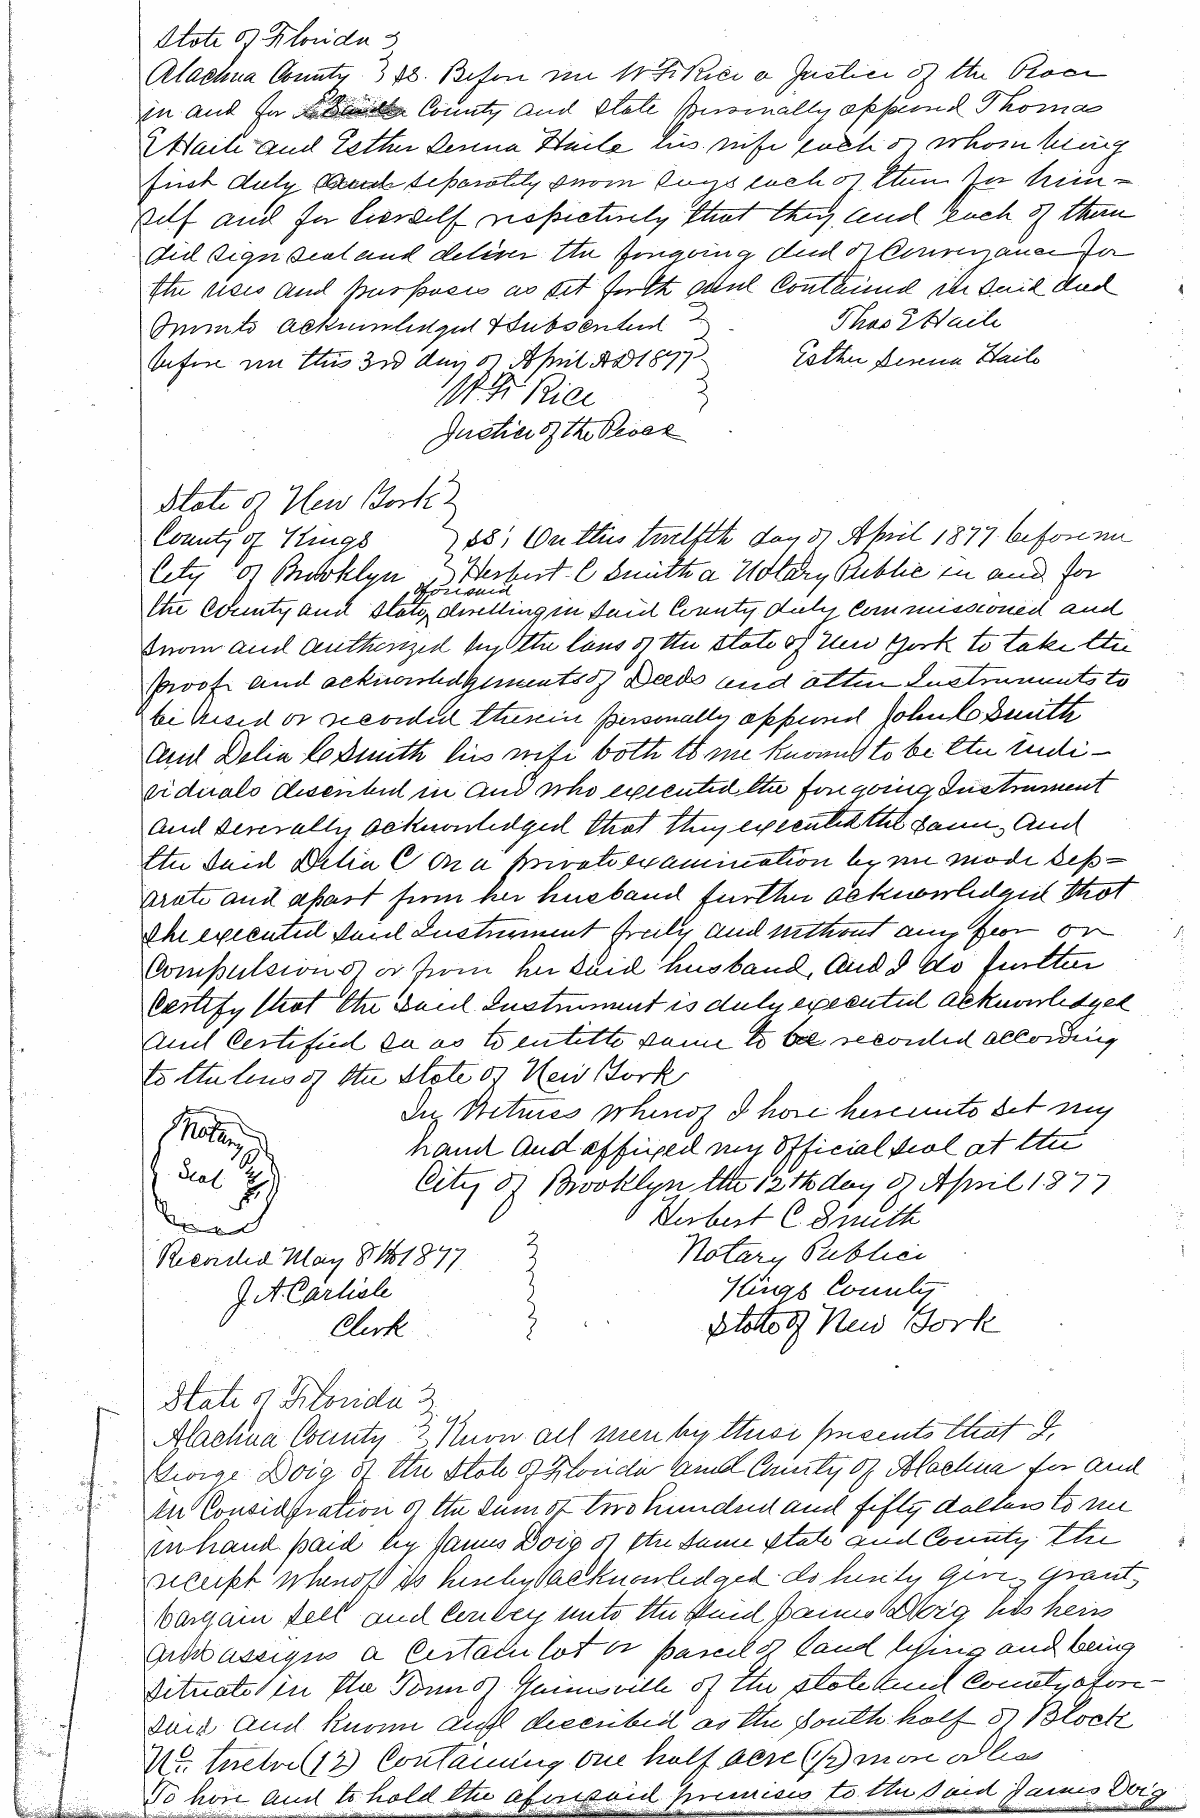 State of Florida }
Alachua County } SS. Before me W. F. Rice a Justice of the Peace
in and for County and State personally appeared Thomas
E Haile and Esther Serena Haile his wife each of whom being
first duly and separately sworn says each of them for him-
self and for herself respectively that they and each of them
did sign seal and deliver the foregoing deed of Conveyance for
the uses and purposes as set forth and contained in said deed
Sworn to acknowledged & Subscribed } Thos E Haile
before me this 3rd day of April AD 1877 } Esther Serena Haile
W. F. Rice }
Justice of the Peace
State of New York }
County of Kings } SS; On this twelfth day of April 1877 before me
City of Brooklyn } Herbert C Smith a Notary Public in and for
aforesaid
the County and State, dwelling in said County duly commissioned and
sworn and authorized by the laws of the State of New York to take the
proof and acknowledgements of Deeds and other Instruments to
be used or recorded therein personally appeared John C Smith
and Delia C Smith his wife both to me known to be the indi-
viduals described in and who executed the foregoing Instrument
and severally acknowledged that they executed the same, and
the said Delia C on a private examination by me made sep-
arate and apart from her husband further acknowledged that
she executed said Instrument freely and without any fear or
compulsion of or from her said husband, And I do further
certify that the said Instrument is duly executed acknowledged
and certified so as to entitle same to be recorded according
to the laws of the State of New York
In Witness whereof I have hereunto set my
hand and affixed my official seal at the
City of Brooklyn the 12th day of April 1877
Notary
Seal
Herbert C. Smith
Recorded May 8th 1877 } Notary Public
J. A. Carlisle } Kings County
Clerk } State of New York
State of Florida }
Alachua County } Know all men by these presents that I,
George Doig of the State of Florida and County of Alachua for and
in Consideration of the sum of two hundred and fifty dollars to me
in hand paid by James Doig of the same state and County the
receipt whereof is hereby acknowledged do hereby give, grant,
bargain sell and convey unto the said James Doig his heirs
and assigns a certain lot or parcel of land lying and being
situate in the Town of Gainesville of the state and County afore-
said and known and described as the South half of Block
No. twelve (12) Containing one half acre (1/2) more or less
To have and to hold the aforesaid premises to the said James Doig